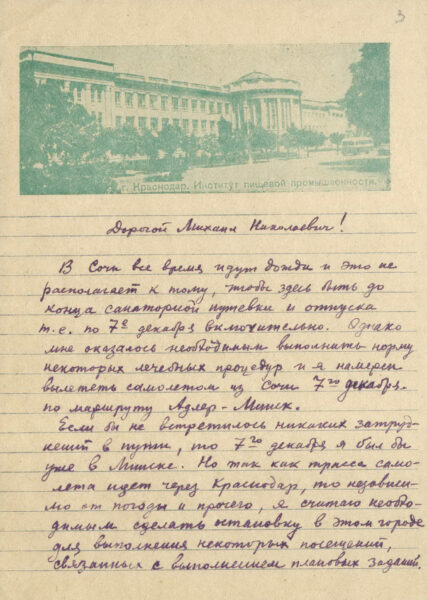 3
г. Краснодар. Институт пищевой промышленности.
Дорогой Михаил Николаевич!
В Сочи все время идут дожди и это не
располагает к тому, чтобы здесь быть до
конца санаторной путевки и отпуска
т.е. по 7е декабря включительно. Однако
мне оказалось необходимым выполнить норму
некоторых лечебных процедур и я намерен
вылететь самолетом из Сочи 7го декабря
по маршруту Адлер-Минск.
Если бы не встретилось никаких затруд-
нений в пути, то 7го декабря я был бы
уже в Минске. Но так как трасса само-
лета идет через Краснодар, то независи-
мо от погоды и прочего, я считаю необхо-
димым сделать остановку в этом городе
для выполнения некоторых посещений,
связанных с выполнением плановых заданий.